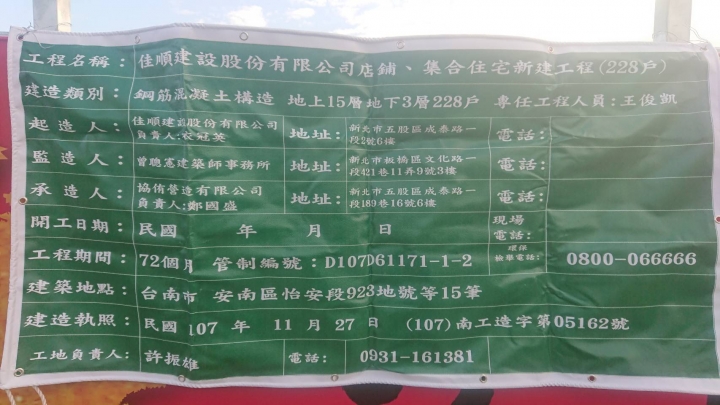 工程名稱： 佳順建設股份有限公司店鋪、集合住宅新建工程(228戶)
建造類別： 鋼筋混凝土構造 地上15層地下3層228戶 專任工程人員：王俊凱
起造人： 佳順建設股份有限公司 地址： 新北市五股區成泰路一 電話：
負責人：冠英 段2號6樓
監造人： 曾聰憲建築師事務所 地址： 新北市板橋區文化路一 電話：
段421巷11弄9號3樓
承造人： 協侑營造有限公司 地址： 新北市五股區成泰路一 電話：
負責人：鄭國盛 段189巷16號6樓
開工日期： 民國 年 月 日 現場
電話：
工程期間： 72個月 管制編號：D107D61171-1-2 環保 0800-066666
檢舉電話：
建築地點： 台南市 安南區怡安段923地號等15筆
建造執照： 民國 107 年 11 月 27 日 (107)南工造字第05162號
工地負責人： 許振雄 電話： 0931-161381